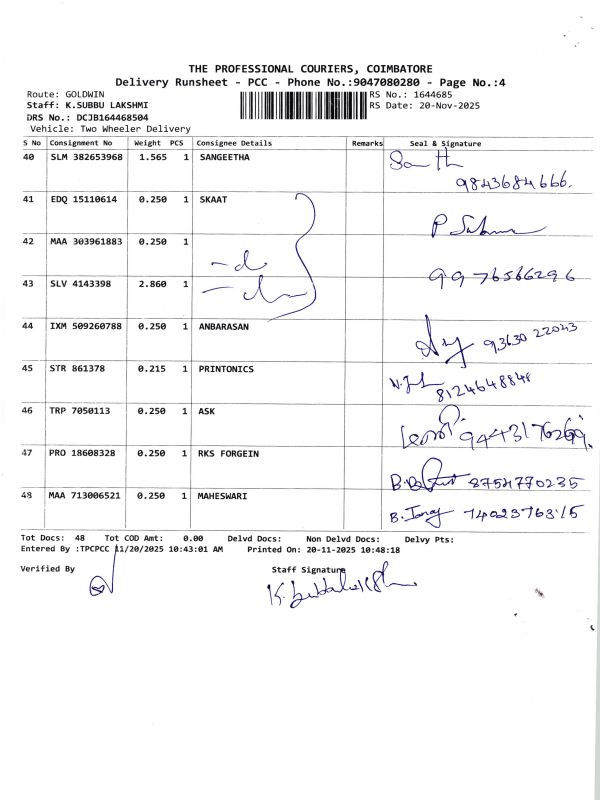 THE PROFESSIONAL COURIERS, COIMBATORE
Delivery Runsheet - PCC - Phone No.:9047080280 - Page No.:4
Route: GOLDWIN RS No.: 1644685
Staff: K.SUBBU LAKSHMI RS Date: 20-Nov-2025
DRS No.: DCJB164468504
Vehicle: Two Wheeler Delivery
S No Consignment No Weight PCS Consignee Details Remarks Seal & Signature
40 SLM 382653968 1.565 1 SANGEETHA
9843684666.
41 EDQ 15110614 0.250 1 SKAAT
42 MAA 303961883 0.250 1
43 SLV 4143398 2.860 1
9976566296
44 IXM 509260788 0.250 1 ANBARASAN
93630 22043
45 STR 861378 0.215 1 PRINTONICS
8124648848
46 TRP 7050113 0.250 1 ASK
9443176269
47 PRO 18608328 0.250 1 RKS FORGEIN
8754770235
48 MAA 713006521 0.250 1 MAHESWARI
7402376315
Tot Docs: 48 Tot COD Amt: 0.00 Delvd Docs: Non Delvd Docs: Delvy Pts:
Entered By :TPCPCC 11/20/2025 10:43:01 AM Printed On: 20-11-2025 10:48:18
Verified By Staff Signature